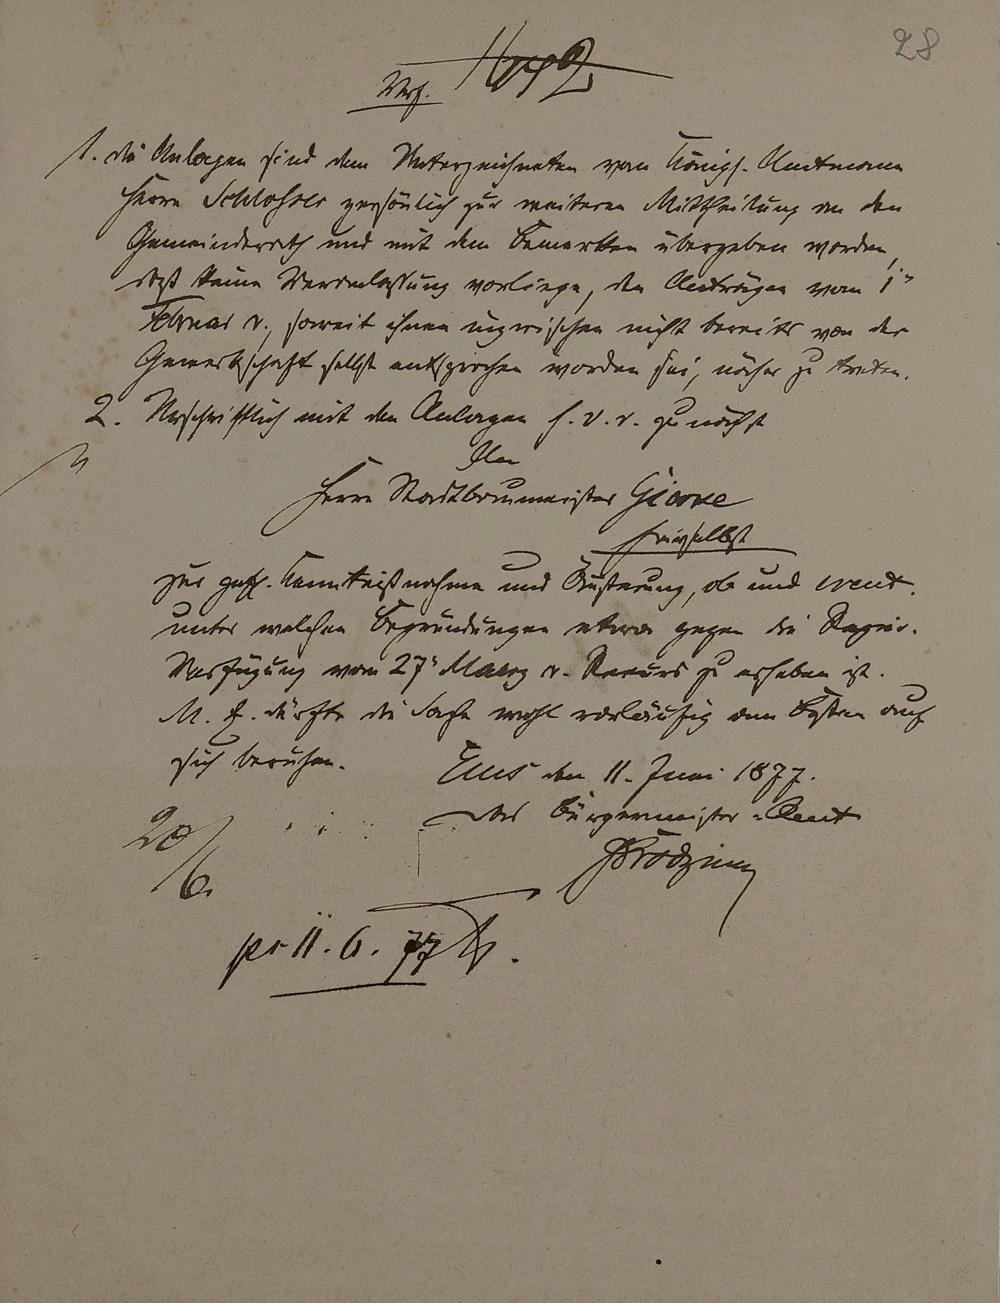 28
Verf.
1. die Anlagen sind dem Unterzeichneten vom Königl. Amtmann
Herrn persönlich zur weiteren Mittheilung an den
Gemeinderath und mit dem Bemerken übergeben worden,
daß keine Veranlassung vorliege, den Anträgen vom 1"
Februar d., soweit ihnen inzwischen nicht bereits von der
Gewerkschaft selbst entsprochen worden sei, näher zu treten.
2. Urschriftlich mit den Anlagen s. v. r. zunächst
An
Herrn Stadtbaumeister
hierselbst
zur gefl. Kenntnißnahme und Äußerung, ob und event.
unter welchen Begründungen etwa gegen die Regier.
Verfügung vom 27' März d. Recurs zu erheben ist.
M. E. dürfte die Sache wohl vorläufig am Besten auf
sich beruhen.
Ems den 11. Juni 1877.
Das Bürgermeister-Amt
20/6.
pr 11. 6. 77